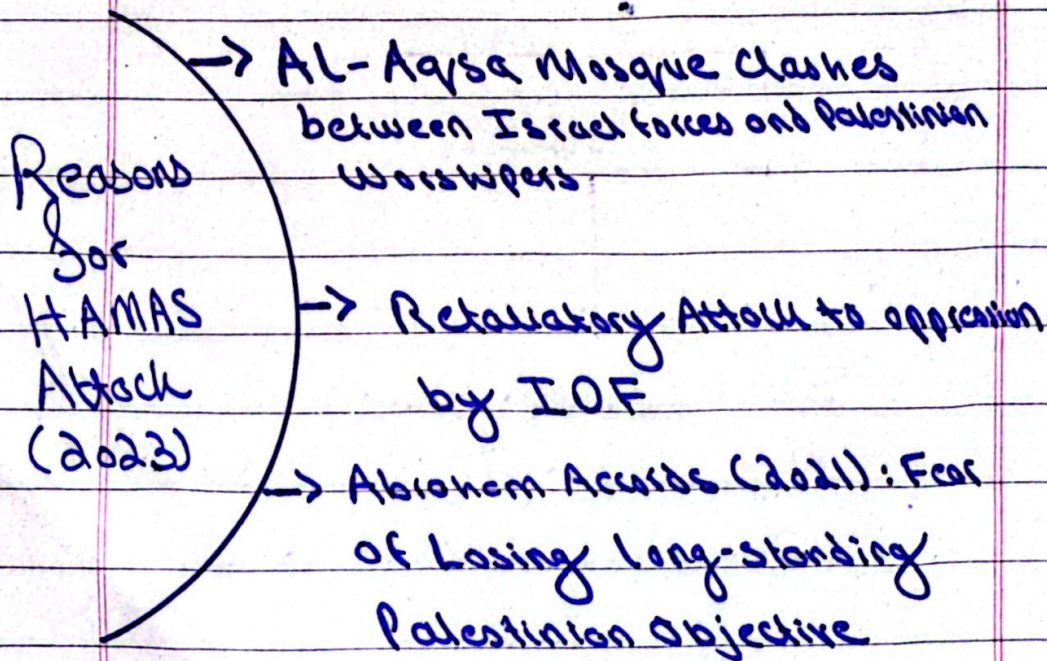 Reasons
for
HAMAS
Attack
(2023)
-> AL-Aqsa Mosque Clashes
between Israel forces and Palestinian
worshipers.
-> Retaliatory Attack to oppression
by IOF
-> Abraham Accords (2021): Fear
of Losing long-standing
Palestinian Objective